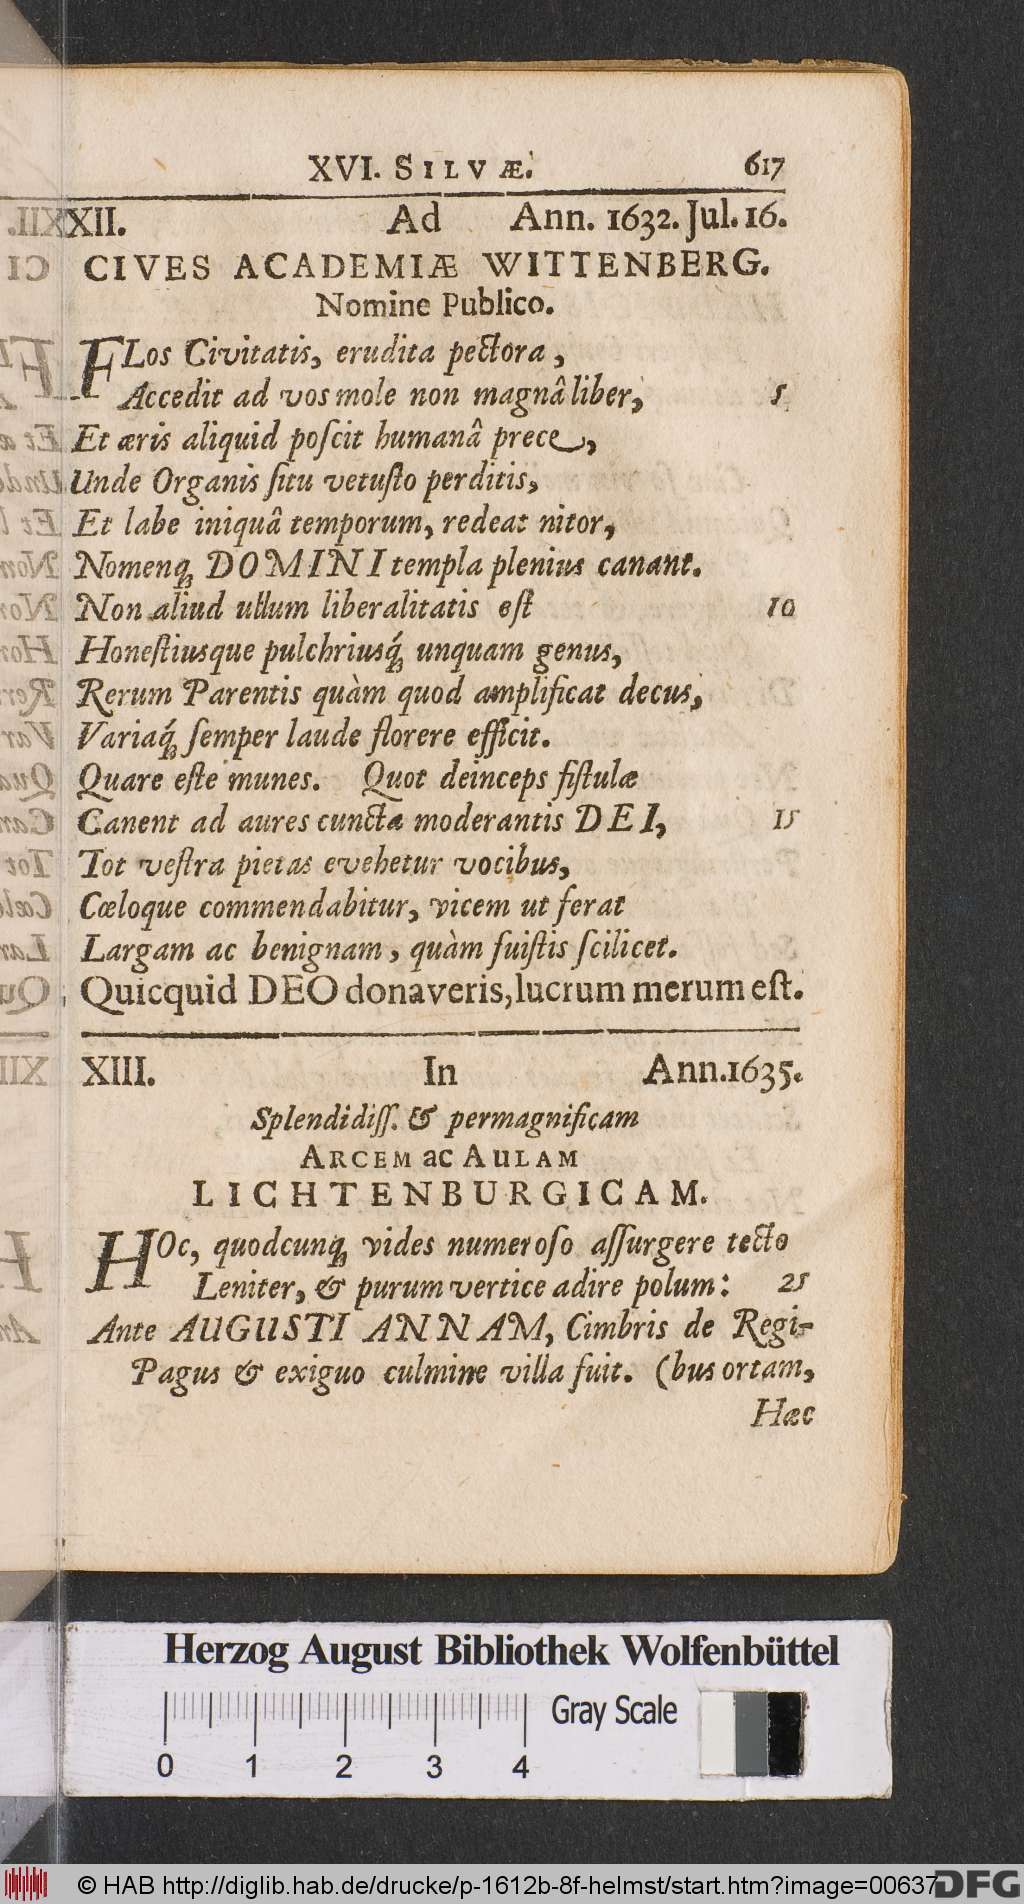 XVI. SILVÆ. 617
XII. Ad Ann. 1632. Jul. 16.
CIVES ACADEMIÆ WITTENBERG.
Nomine Publico.
FLos Civitatis, erudita pectora,
Accedit ad vos mole non magnâ liber, 5
Et æris aliquid poſcit humanâ prece,
Unde Organis ſitu vetuſto perditis,
Et labe iniquâ temporum, redeat nitor,
Nomenq́ꝫ DOMINI templa plenius canant.
Non aliud ullum liberalitatis eſt 10
Honeſtiusque pulchriusq́ꝫ unquam genus,
Rerum Parentis quàm quod amplificat decus,
Variaq́ꝫ ſemper laude florere efficit.
Quare eſte munes. Quot deinceps fiſtulæ
Canent ad aures cuncta moderantis DEI, 15
Tot veſtra pietas evehetur vocibus,
Cœloque commendabitur, vicem ut ferat
Largam ac benignam, quàm fuiſtis ſcilicet.
Quicquid DEO donaveris, lucrum merum eſt.
XIII. In Ann. 1635.
Splendidiſſ. & permagnificam
ARCEM ac AULAM
LICHTENBURGICAM.
HOc, quodcunqꝫ vides numeroſo aſſurgere tecto
Leniter, & purum vertice adire polum: 25
Ante AUGUSTI ANNAM, Cimbris de Regi-
Pagus & exiguo culmine villa fuit. (bus ortam,
Hæc
Herzog August Bibliothek Wolfenbüttel
Gray Scale
0 1 2 3 4
© HAB http://diglib.hab.de/drucke/p-1612b-8f-helmst/start.htm?image=00637
DFG